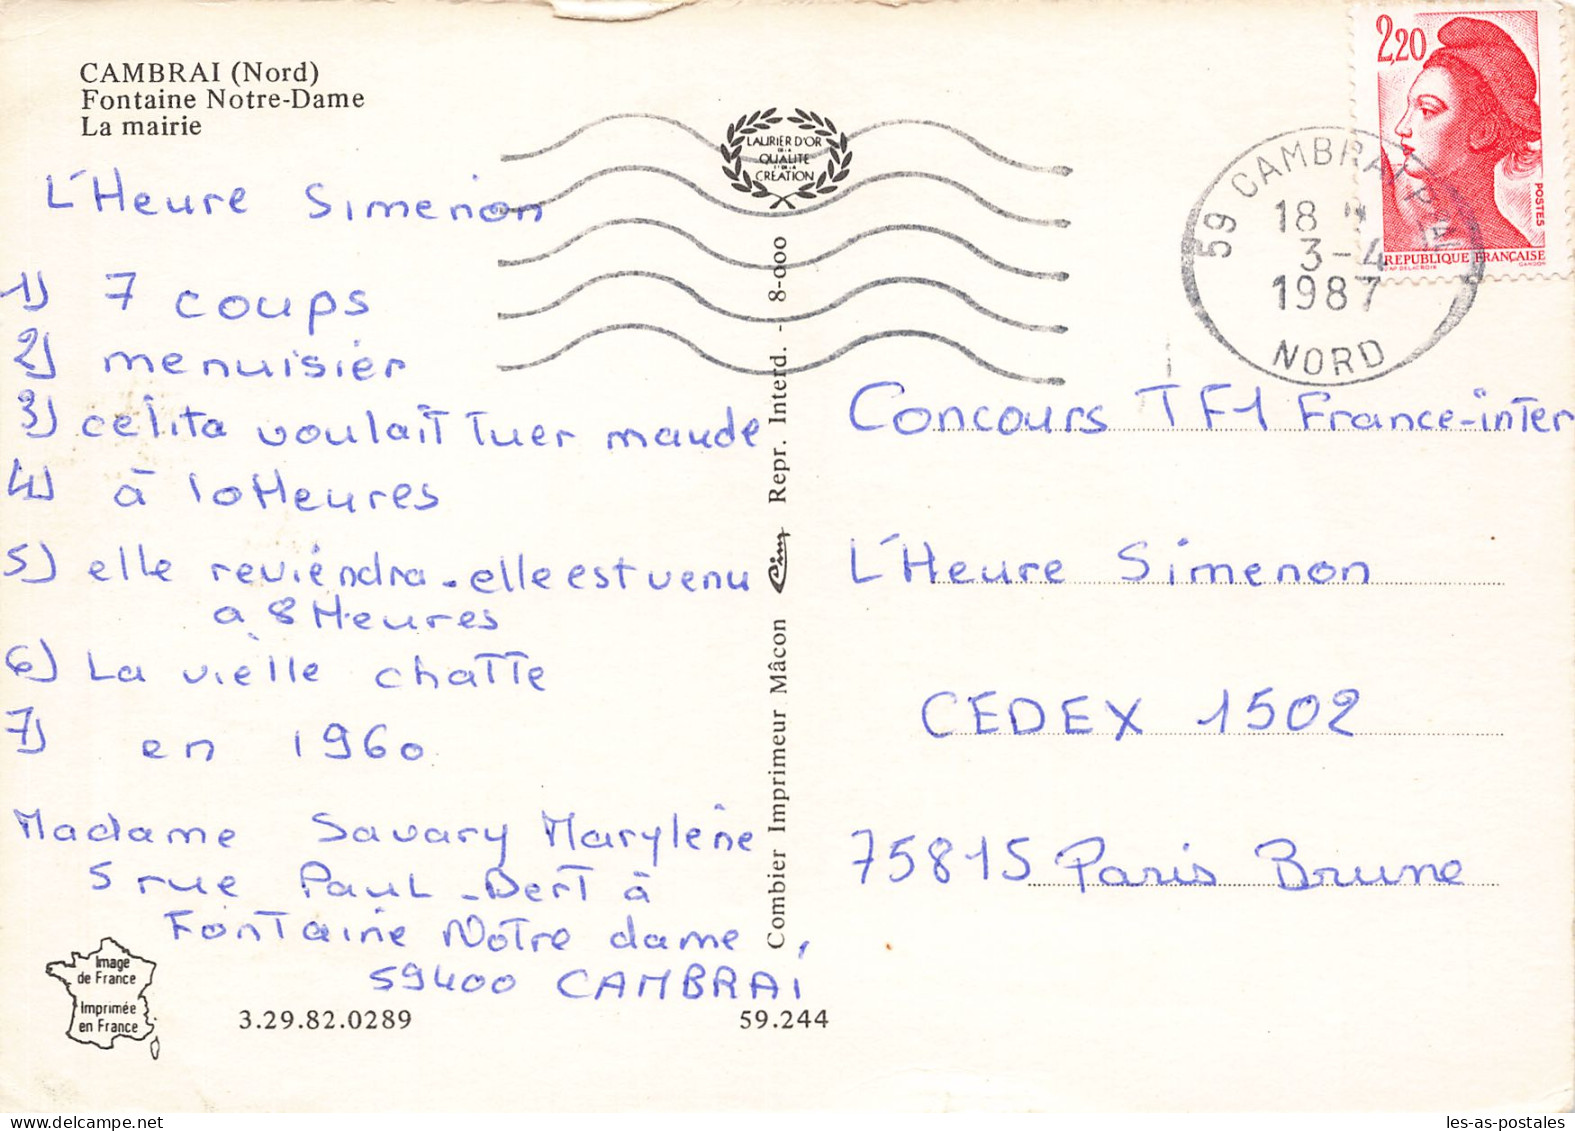 CAMBRAI (Nord)
Fontaine Notre-Dame
La mairie
L'Heure Simenon
1) 7 coups
2) menuisier
3) celita voulait tuer maude
4) à 10 Heures
5) elle reviéndra - elle est venu
a 8 Heures
6) La vielle chatte
7) en 1960
Madame Savary Marylène
5 rue Paul-Bert à
Fontaine Notre dame,
59400 CAMBRAI
Image
de France
Imprimée
en France
3.29.82.0289
59.244
LAURIER D'OR
DE LA
QUALITE
ET DE LA
CRÉATION
Combier Imprimeur Mâcon Cim Repr. Interd. - 8-000
2,20
POSTES
REPUBLIQUE FRANÇAISE
59 CAMBRAI
18 H
3-4
1987
NORD
Concours TF1 France-inter
L'Heure Simenon
CEDEX 1502
75815 Paris Brune
les-as-postales